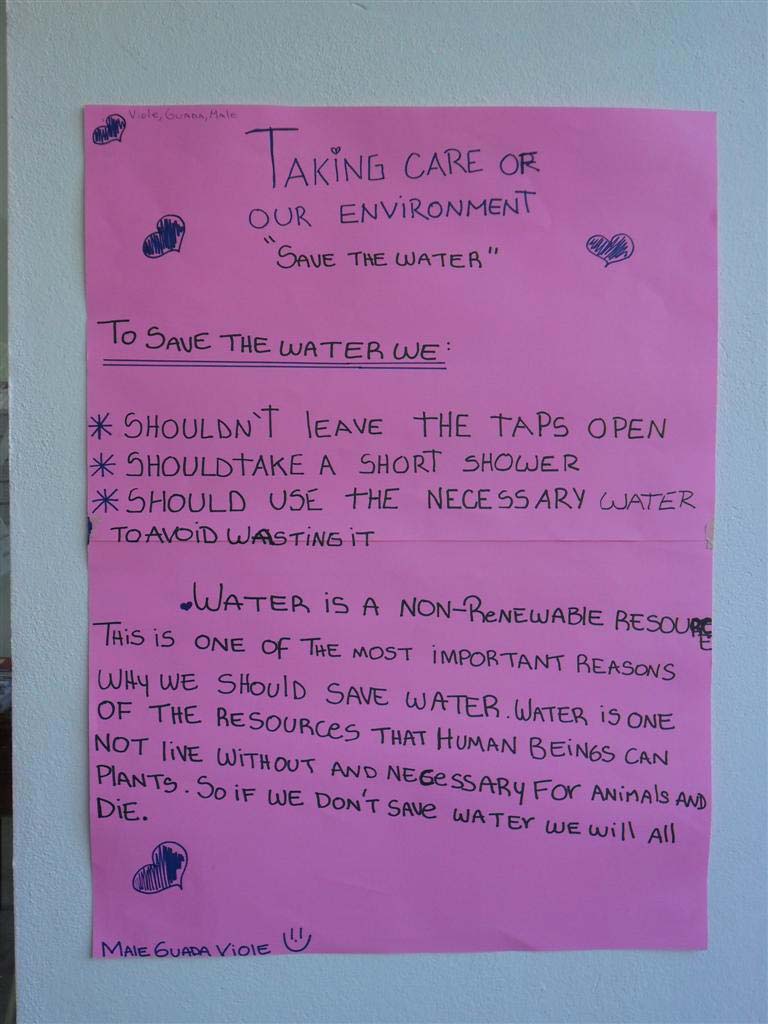 Viole, Guada, Male
TAKING CARE OF
OUR ENVIRONMENT
"SAVE THE WATER"
TO SAVE THE WATER WE:
* SHOULDN'T LEAVE THE TAPS OPEN
* SHOULD TAKE A SHORT SHOWER
* SHOULD USE THE NECESSARY WATER
TO AVOID WASTING IT
WATER IS A NON-RENEWABLE RESOURCE
THIS IS ONE OF THE MOST IMPORTANT REASONS
WHY WE SHOULD SAVE WATER. WATER IS ONE
OF THE RESOURCES THAT HUMAN BEINGS CAN
NOT LIVE WITHOUT AND NECESSARY FOR ANIMALS AND
PLANTS. SO IF WE DON'T SAVE WATER WE WILL ALL
DIE.
MALE GUADA VIOLE